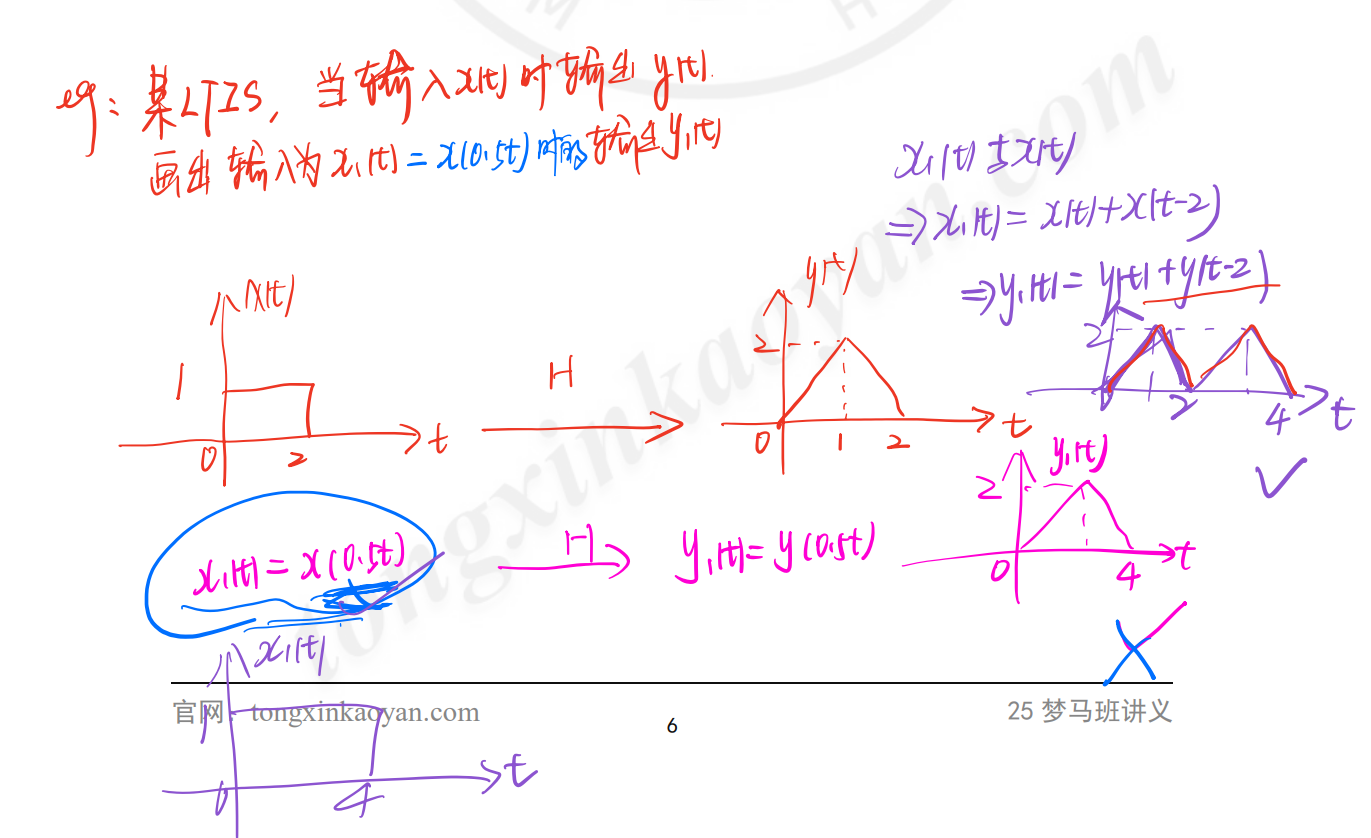 eg: 某LTIS, 当输入x(t)时输出y(t).
画出输入为x₁(t)=x(0.5t)时的输出y₁(t)
x₁(t) 与 x(t)
⇒x₁(t)= x(t)+x(t-2)
⇒y₁(t)= y(t)+y(t-2)
2
0 2 4 t
x(t)
1
0 2 t
H
y(t)
2
0 1 2 t
x₁(t)= x(0.5t)
H
y₁(t)= y(0.5t)
y₁(t)
2
0 4 t
x₁(t)
1
0 4 t
tongxinkaoyan.com
官网：tongxinkaoyan.com
6
25 梦马班讲义